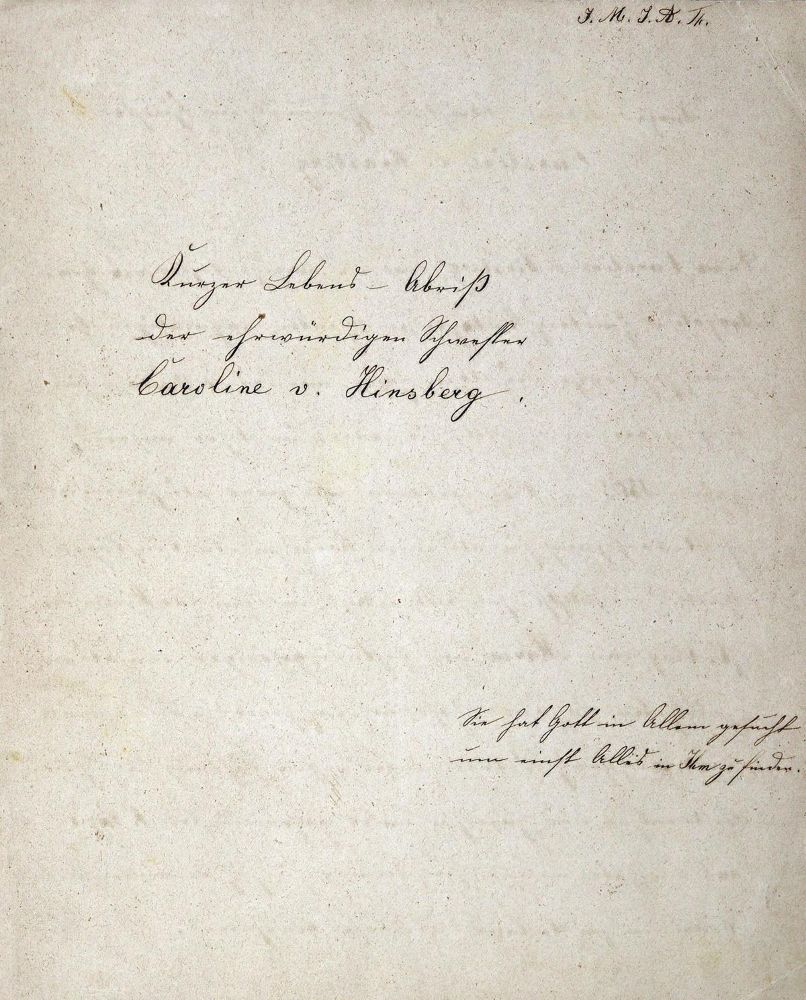 J. M. J. A. Th.
Kurzer Lebens-Abriß
der ehrwürdigen Schwester
Caroline v. Hinsberg.
Sie hat Gott in Allem gesucht
um einst Alles in Ihm zu finden.